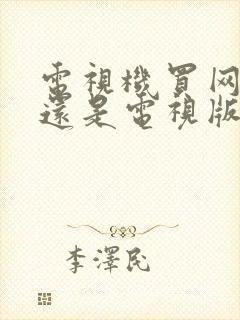 電視機買网
還是電視版
李澤民